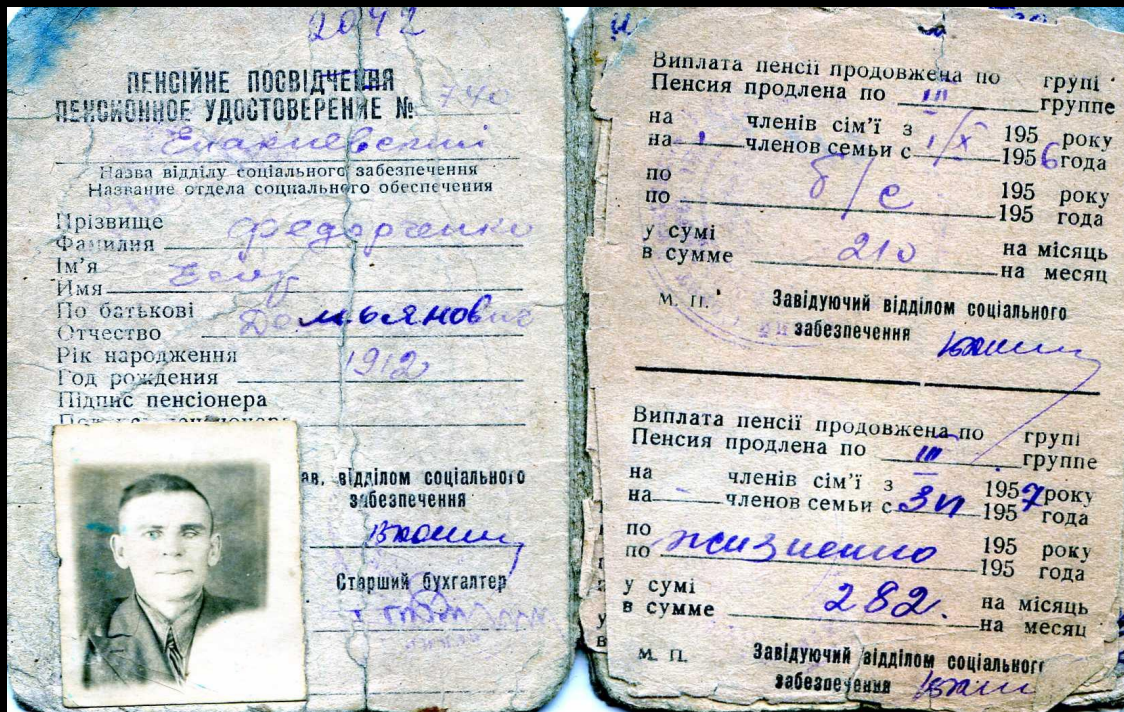 2042
ПЕНСІЙНЕ ПОСВІДЧЕННЯ
ПЕНСИОННОЕ УДОСТОВЕРЕНИЕ № 740
Енакиевский
Назва відділу соціального забезпечення
Название отдела социального обеспечения
Прізвище
Фамилия Федорченко
Ім'я
Имя
По батькові
Отчество Домьянович
Рік народження 1912
Год рождения
Підпис пенсіонера
ав. відділом соціального
забезпечення
Старший бухгалтер
Виплата пенсії продовжена по групі
Пенсия продлена по III группе
на членів сім'ї з 195 року
на членов семьи с 1/X 1956 года
по 195 року
по б/с 195 года
у сумі на місяць
в сумме 210 на месяц
М. П. Завідуючий відділом соціального
забезпечення
Виплата пенсії продовжена по групі
Пенсия продлена по III группе
на членів сім'ї з 1957 року
на членов семьи с 195 года
по 195 року
по жизненно 195 года
у сумі на місяць
в сумме 282. на месяц
М. П. Завідуючий відділом соціальног
забезпечення